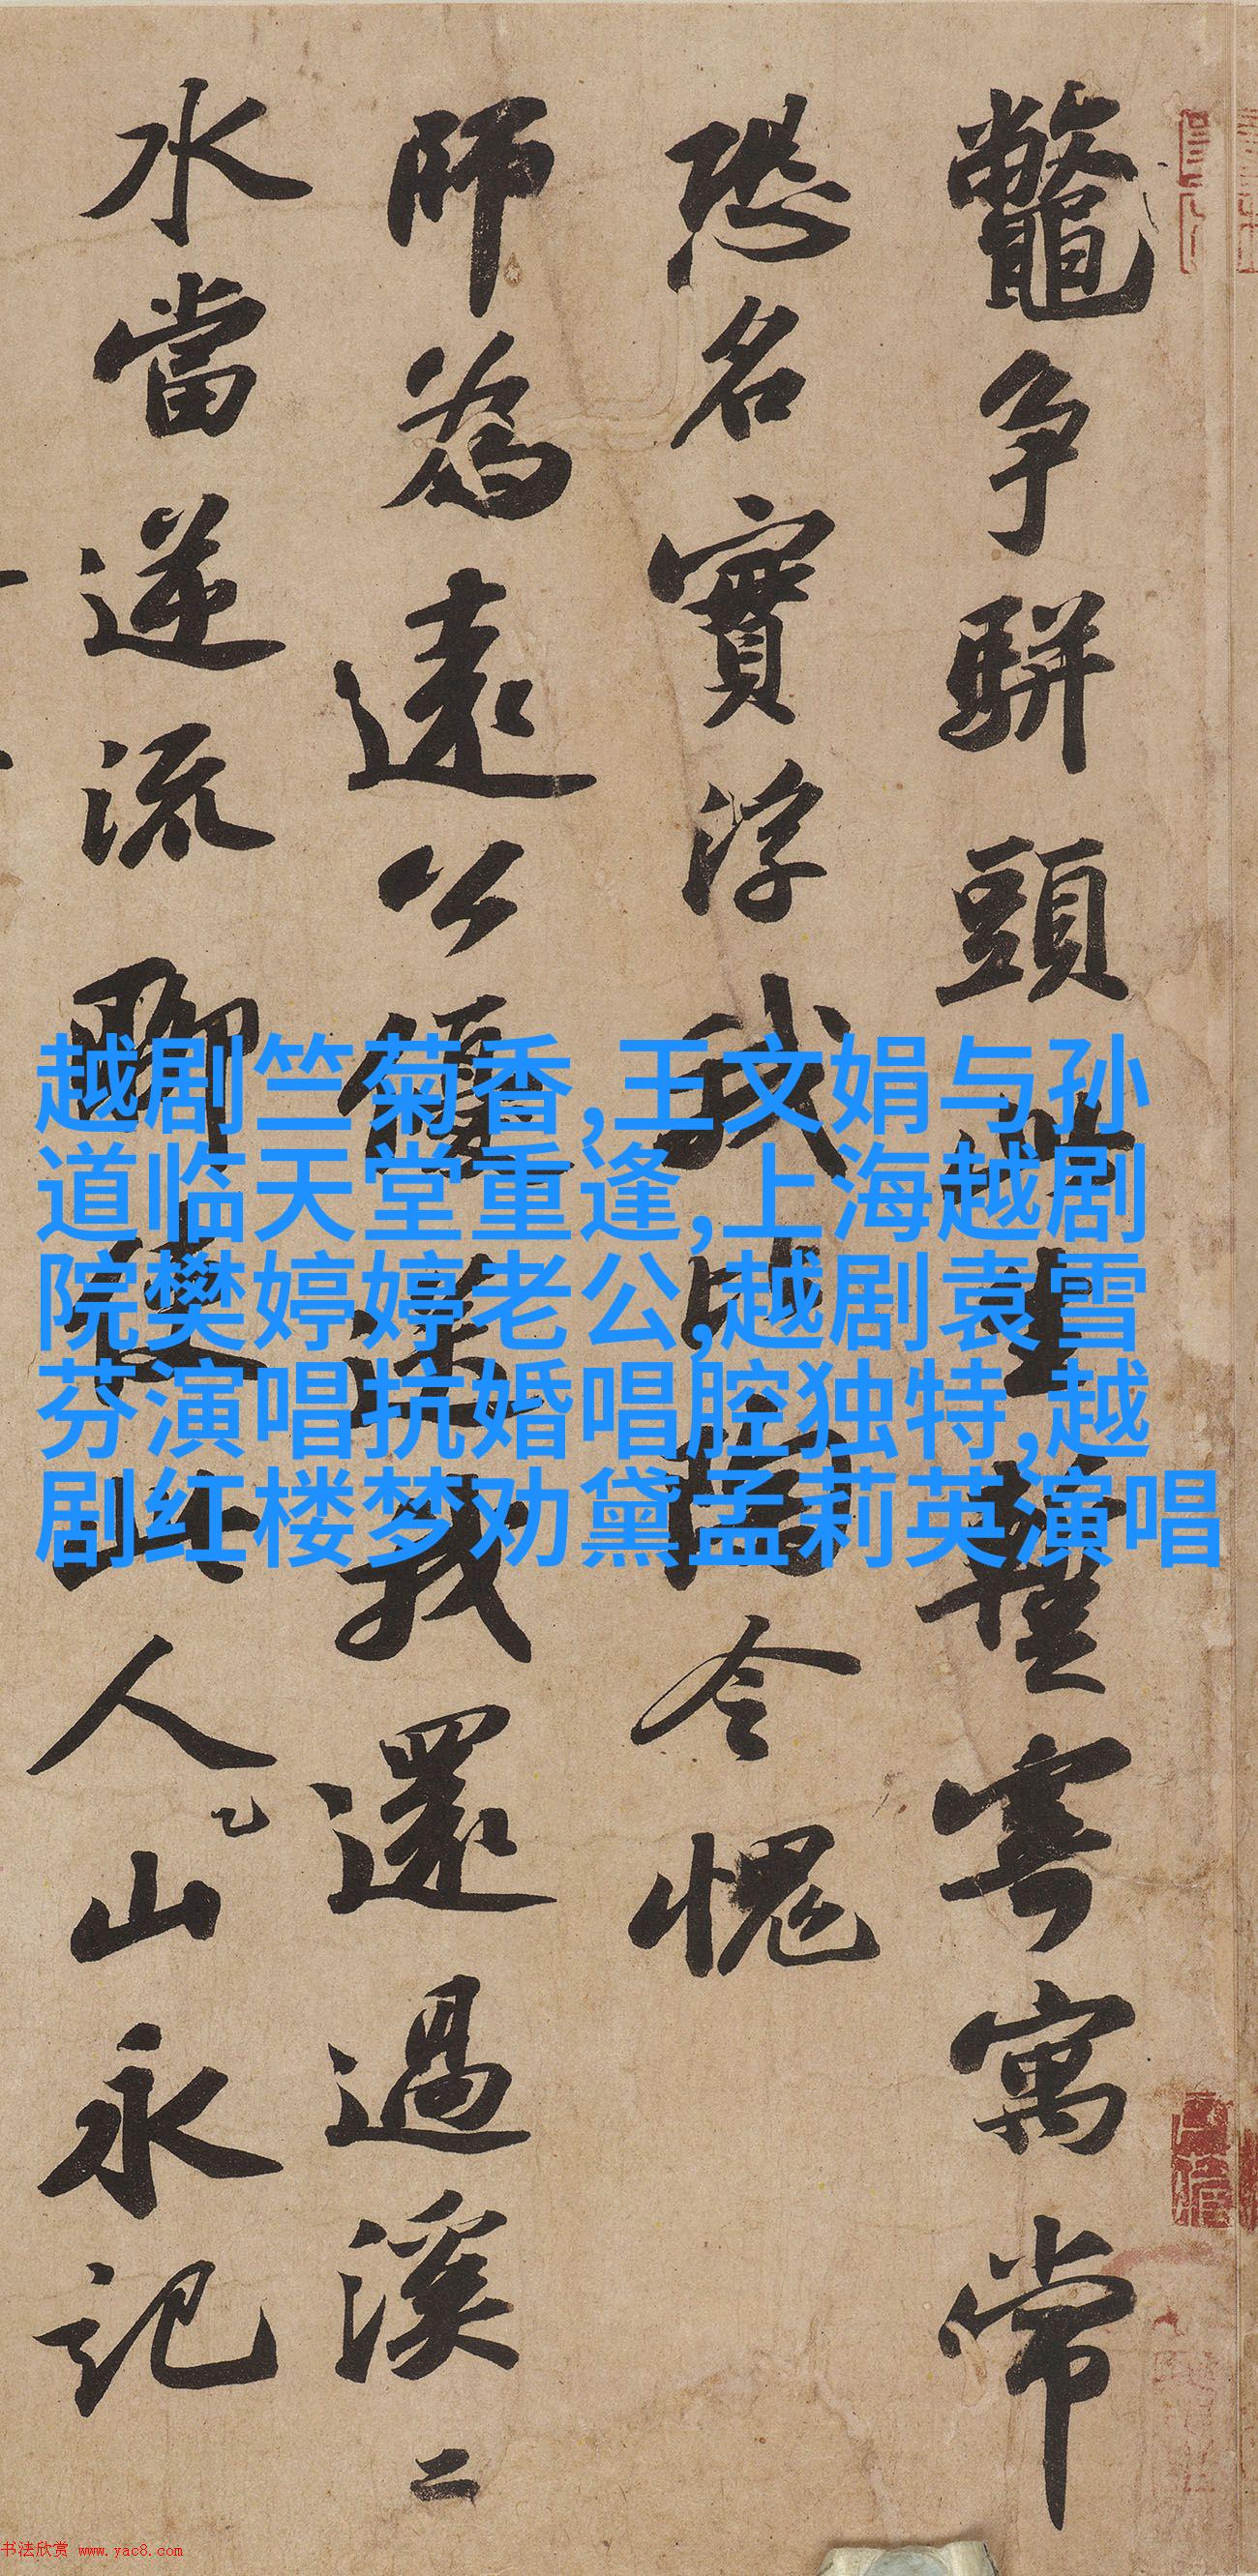 鼈争駢頭此生暫寄寓常
恐名實浮我比陶令愧
師為遠公優送我還過溪二
水當逆流聊使此人山永記
越剧竺菊香,王文娟与孙
道临天堂重逢,上海越剧
院樊婷婷老公,越剧袁雪
芬演唱抗婚唱腔独特,越
剧红楼梦劝黛孟莉英演唱
书法欣赏 www.yac8.com